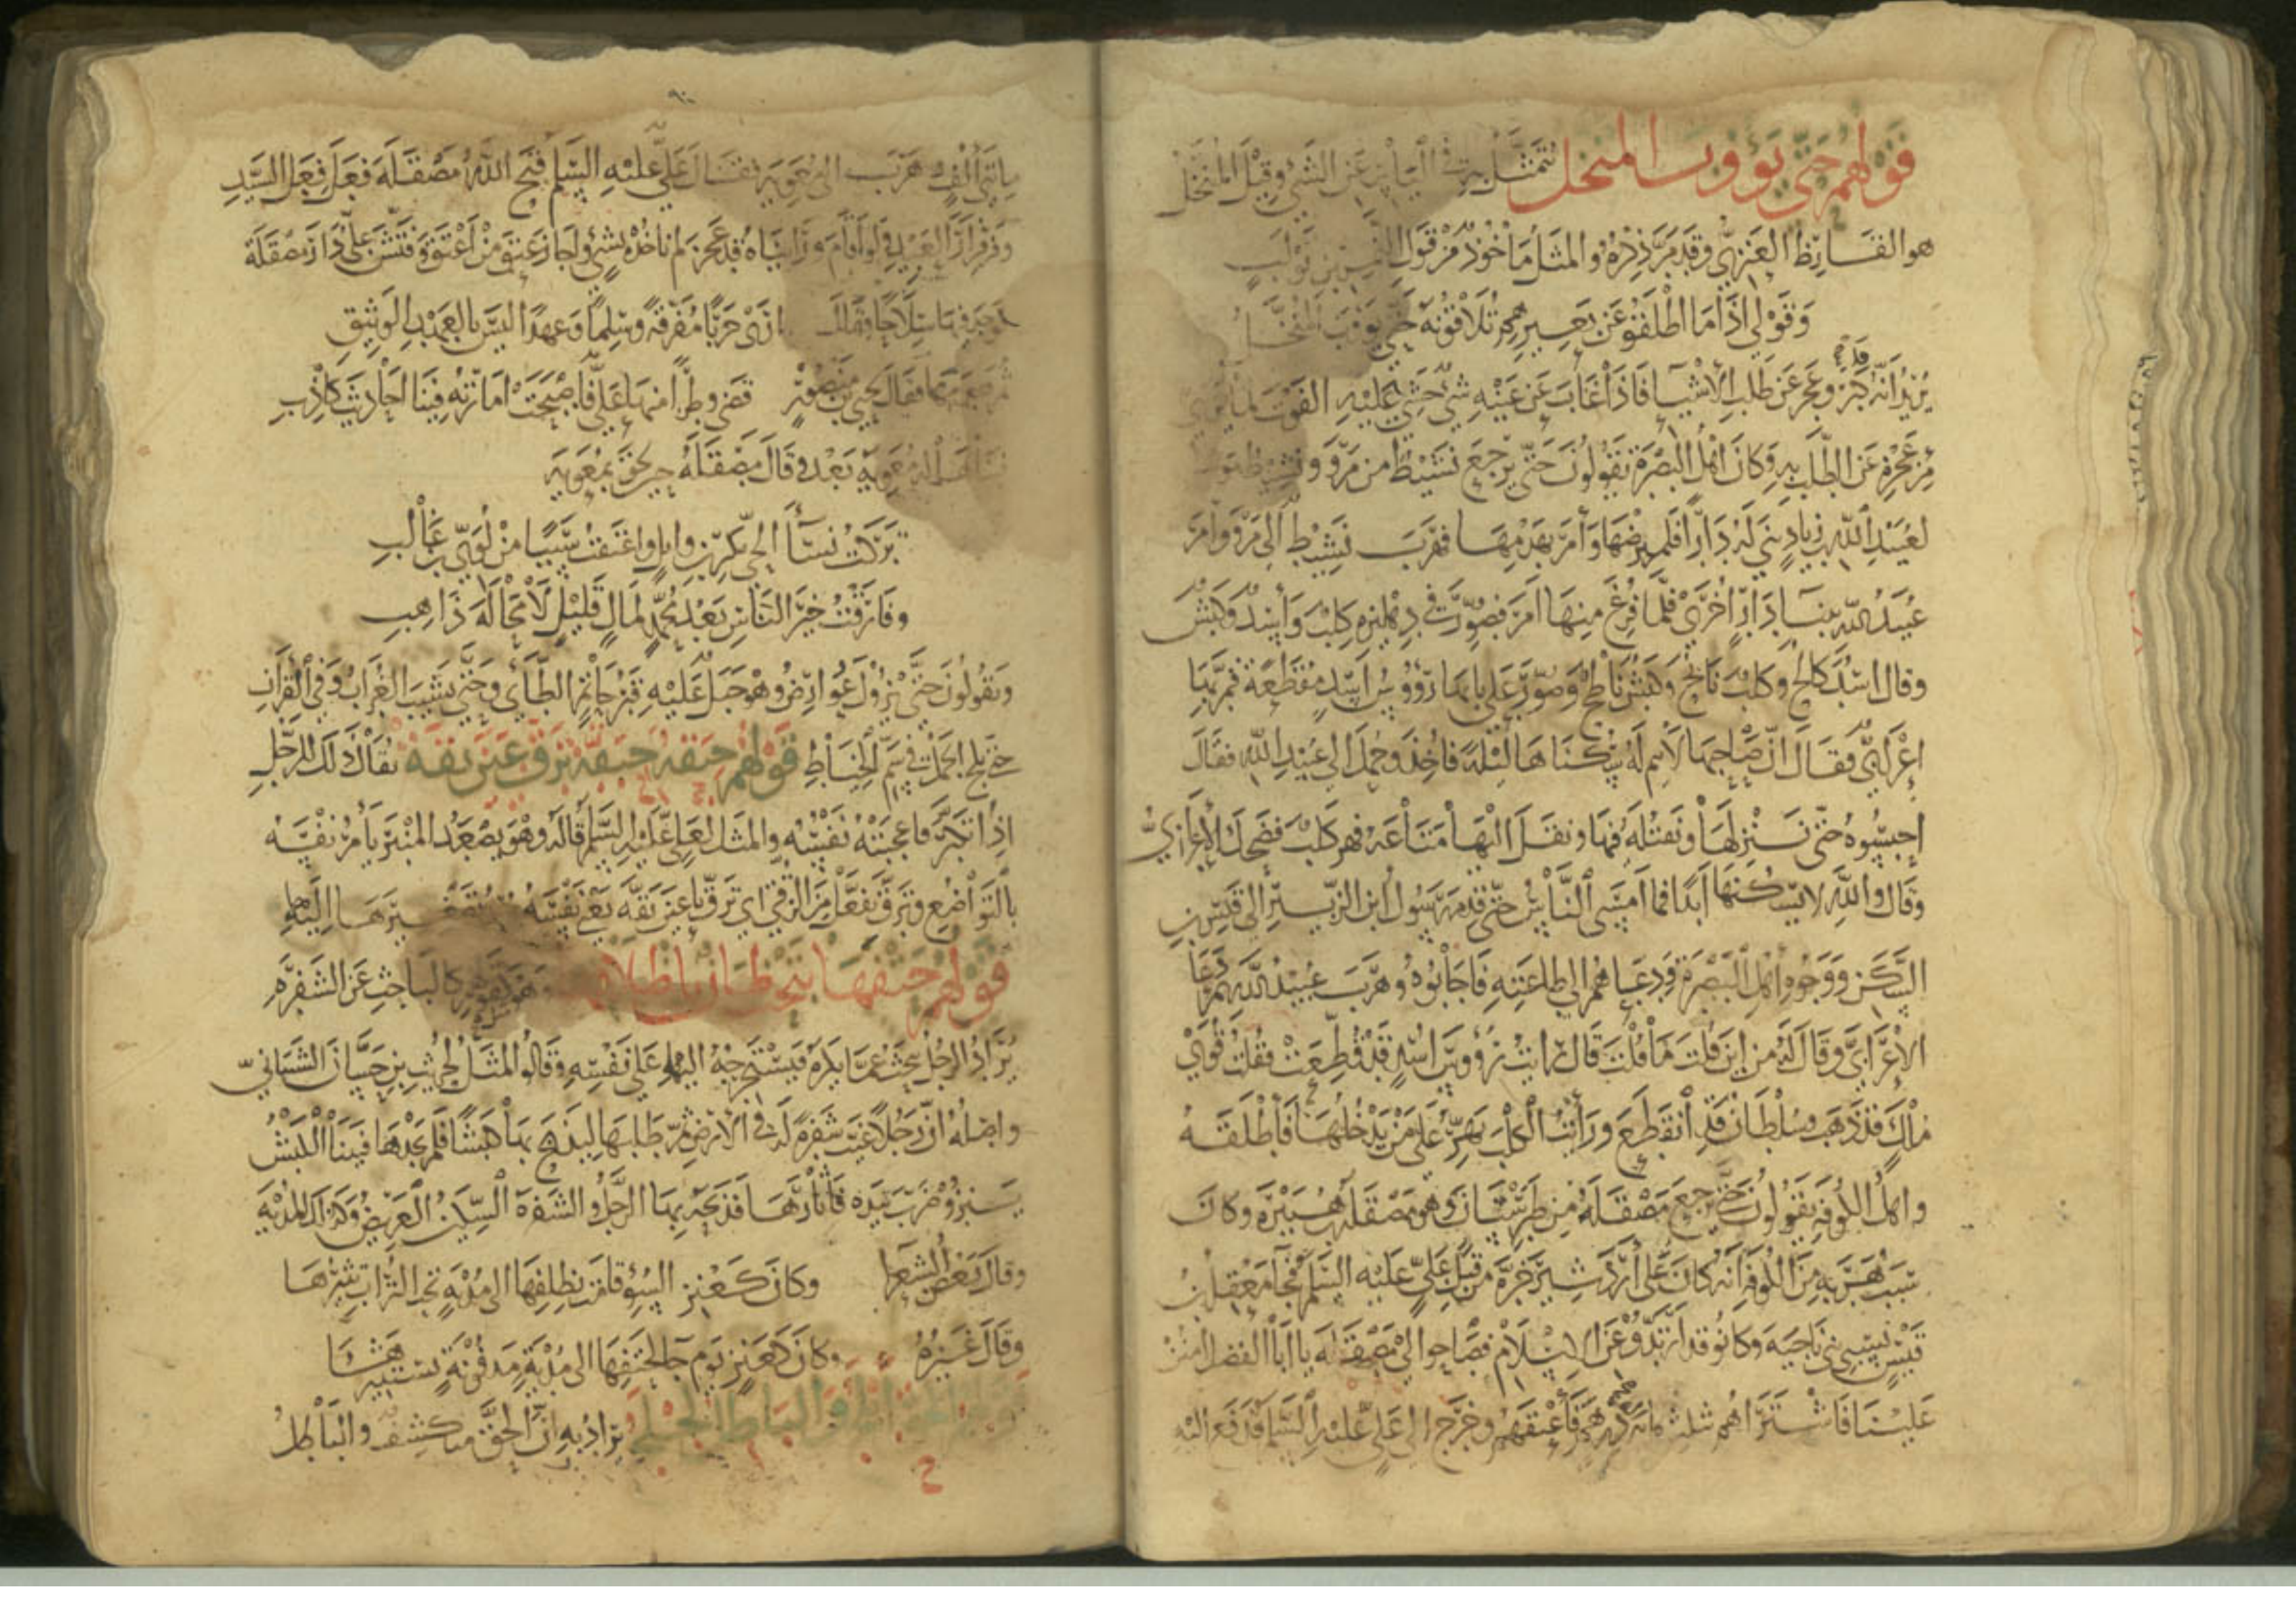 قولهم حتى يؤوب المنخل يتمثل به في اليأس عن الشيء وقيل المنخل
هو القارظ العنزي وقد مر ذكره والمثل مأخوذ من قول النمر بن تولب
وقولي اذا ما اطلقوا عن بعيرهم تلاقونه حتى يؤوب المنخل
يريد انه كبر وعجز عن طلب الاشيا فاذا غاب عن عينه شي خشي عليه الفوت لما
من عجزه عن الطلب به وكان اهل البصرة يقولون حتى يرجع نشيط من مرو ونشيط
لعبيد الله بن زياد بنى له دارا فلم يرضها وأمر بهدمها فهرب نشيط الى مرو وأمر
عبيد الله ببنا دار اخرى فلما فرغ منها امر فصورت في دهليزه كلب وأسد وكبش
وقال اسد كالح وكلب نابح وكبش ناطح وصور على بابها رؤوس اسد مقطعة فمر بها
اعرابي فقال ان صاحبها لا يسكنها الا ليلة فاخذ وحمل الى عبيد الله فقال
احبسوه حتى ننزلها ونقتله فيها ونقل اليها متاعه فهر كلب فضحك الاعرابي
وقال والله لا يسكنها أبدا فما امسى الناس حتى قدم رسول ابن الزبير الى قيس بن
السكن ووجوه اهل البصرة فدعاهم الى طاعته فاجابوه وهرب عبيد الله ثم دعا
الاعرابي وقال له من اين قلت ما قلت قال رايت رؤوس اسد قد قطعت فقلت قوي
ملك قد ذهب وسلطان قد انقطع ورأيت الكلب يهر على من يدخلها فأطلقه
واهل الكوفة يقولون حتى يرجع مصقلة من طبرستان وهو مصقلة بن هبيرة وكان
سبب هربه من الكوفة انه كان على أردشير خرة من قبل علي عليه السلم فجا معقل بن
قيس بسبي بني ناجية وكانوا قد ارتدوا عن الاسلام فصاحوا الى مصقلة يا ابا الفضل امنن
علينا فاشتراهم بثلث مائة الف درهم فأعتقهم وخرج الى علي عليه السلم فدفع اليه
٩٠
مائتي ألف وهرب الى معوية فقال علي عليه السلم قبح الله مصقلة فعل فعل السيد
وفر فرار العبيد ولو أقام ورأيناه قد عجز لم ناخذه بشي واجاز عتق من اعتق وفتش علي دار مصقلة
فوجد فيها سلاحا فقال ارى حربا مفرقة وسلما وعهدا ليس بالعهد الوثيق
ثم هدمها فقال يحيى بن منصور قضى وطرا منها علي فأصبحت امارته فينا احاديث كاذب
معوية بعد وقال مصقلة حين لحق بمعوية
تركت نساء الحي بكر بن وايل واعتقت سبيا من لؤي بن غالب
وفارقت خير الناس بعد محمد لمال قليل لا محالة ذاهب
ويقولون حتى يزول عوارض وهو جبل عليه قبر حاتم الطائي وحتى يشيب الغراب وفي القران
حتى يلج الجمل في سم الخياط قولهم حزقه حزقه ترق عين بقه يقال ذلك للرجل
اذا تكبر فاعجبته نفسه والمثل لعلي عليه السلم قاله وهو يصعد المنبر يأمر نفسه
بالتواضع وترق تفعل من الرقي اي ترق يا عين بقه يعني نفسه
قولهم حتفها تحمل ضأن باظلافها وهو كقولهم كالباحث عن الشفرة
يراد الرجل يبحث عما يكره فيستخرجه على نفسه وقالوا المثل لحريث بن حسان الشيباني
واصله ان رجلا غيب شفرة له في الارض ثم طلبها ليذبح بها كبشا فلم يجدها فبينا الكبش
ينزو ضرب بيده فأثارها فذبحه بها الرجل والشفرة السكين العريض وكذلك المدية
وقال بعض الشعرا وكان كعنز السوء قامت بظلفها الى مدية تحت التراب تثيرها
وقال غيره وكان كعنز يوم جا لحتفها الى مدية مدفونة تستثيرها
قولهم الحق ابلج والباطل لجلج يراد به ان الحق منكشف والباطل